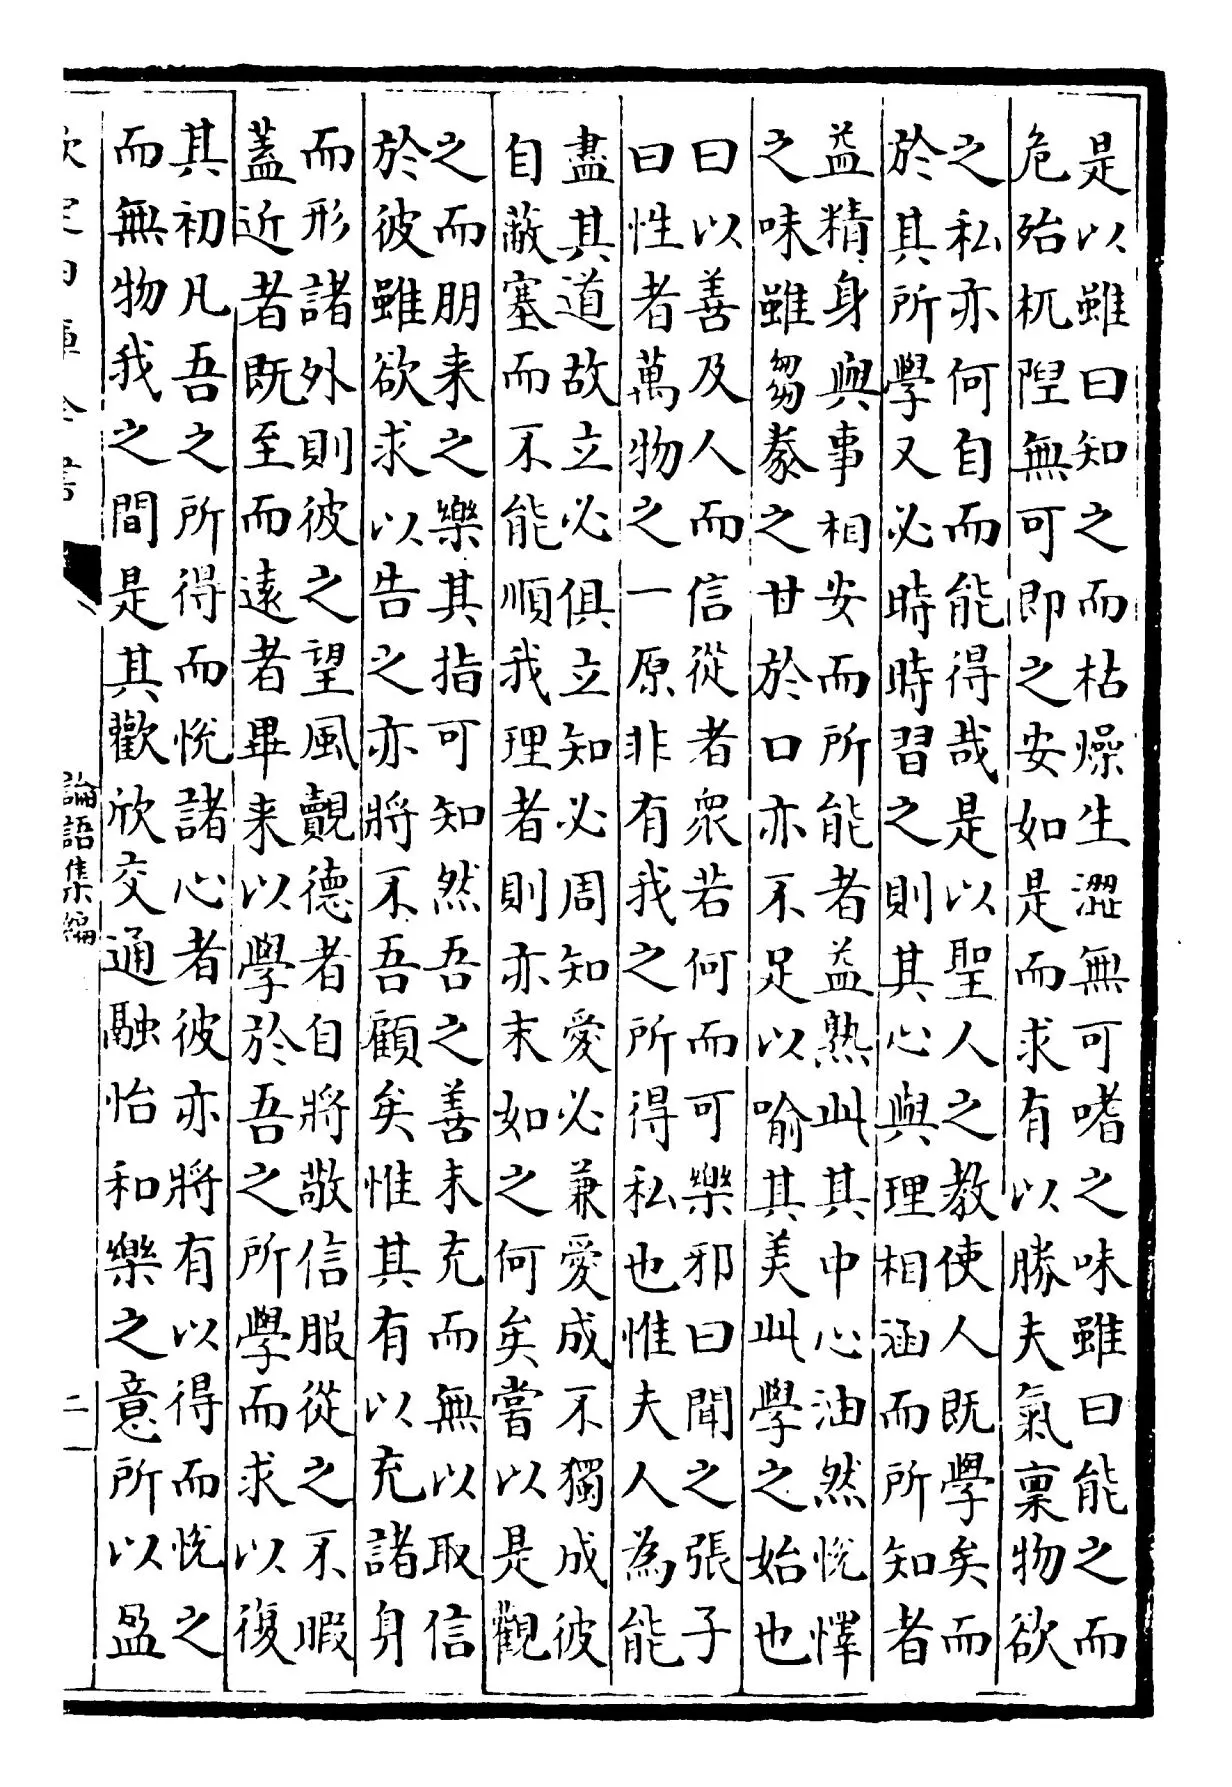 是以雖曰知之而枯燥生澀無可嗜之味雖曰能之而
危殆杌隉無可即之安如是而求有以勝夫氣稟物欲
之私亦何自而能得哉是以聖人之教使人既學矣而
於其所學又必時時習之則其心與理相涵而所知者
益精身與事相安而所能者益熟此其中心油然悅懌
之味雖芻豢之甘於口亦不足以喻其美此學之始也
曰以善及人而信從者衆若何而可樂邪曰聞之張子
曰性者萬物之一原非有我之所得私也惟夫人為能
盡其道故立必俱立知必周知愛必兼愛成不獨成彼
自蔽塞而不能順我理者則亦末如之何矣嘗以是觀
之而朋来之樂其指可知然吾之善未充而無以取信
於彼雖欲求以告之亦將不吾顧矣惟其有以充諸身
而形諸外則彼之望風覿德者自將敬信服從之不暇
蓋近者既至而遠者畢来以學於吾之所學而求以復
其初凡吾之所得而悅諸心者彼亦將有以得而悅之
而無物我之間是其歡欣交通融怡和樂之意所以盈
欽定四庫全書
論語集編
二